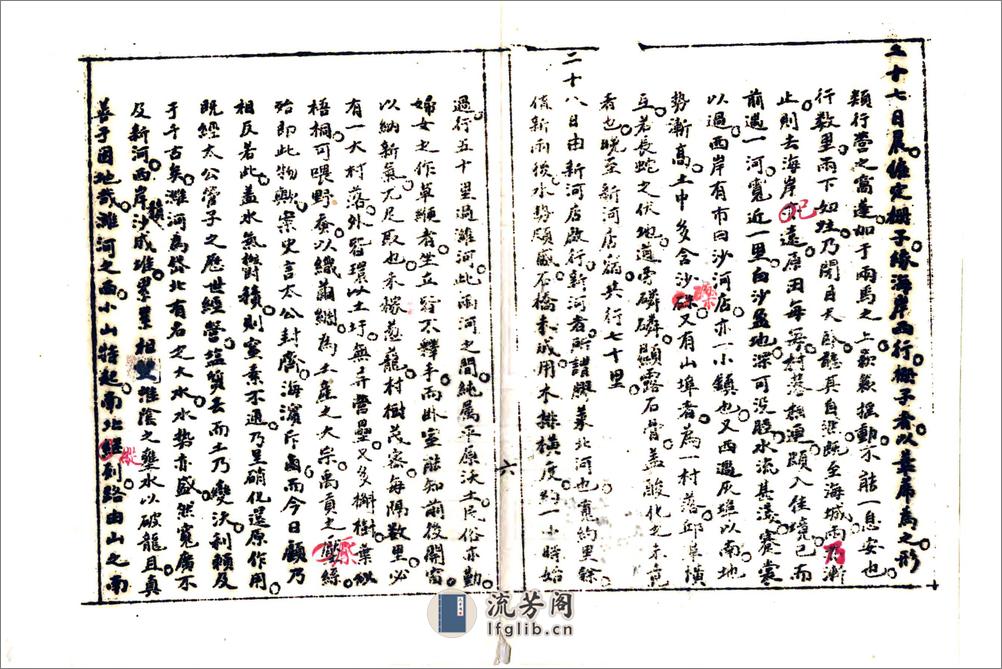 二十七日晨僱定棚子緣海岸西行棚子者以葦席為之形
類行營之窩蓬加于兩馬之上顛簸搖動不能一息安也
行數里雨下如注乃閉目大臥聽其自樂甦至海城雨乃漸
止則去海岸已遠居田每每村巷櫛連頗入佳境已而
前遇一河寬近一里白沙盈地深可沒股水流甚淺褰裳
以過西岸有市曰沙河店亦一小鎮也又西過灰埠以南地
勢漸高土中多含沙礫又有山埠者為一村落邱阜橫
互若長蛇之伏地道旁磷磷顯露石骨蓋酸化之未竟
者也晚至新河店宿共行七十里
二十八日由新河店啟行新河者所謂膠萊北河也寬約里餘
值新雨後水勢頗盛石橋未成用木排橫度約一小時始
過行五十里過濰河此兩河之間純属平原沃土民俗亦勤
婦女之作草緶者坐立皆不釋手而卧室能知前後開窗
以納新氣尤足取也禾稼蔥蘢村樹茂密每隔數里必
有一大村落外皆環以土圩無异營壘又多槲樹葉似
梧桐可喂野蚕以織繭綢為土產之大宗禹貢之檿絲
殆即此物歟案史言太公封齊海濱斥鹵而今日顧乃
相反若此蓋水氣欝積則室素不通乃呈硝化還原作用
既經太公管子之歷世經營塩質去而土乃變沃利賴及
于千古矣濰河為岱北有名之大水水勢亦盛然寬廣不
及新河西岸沙成堆累累相望淮陰之壅水以破龍且真
善于因地哉濰河之西小山特起南北縱列路由山之南
六
流芳阁
lfglib.cn